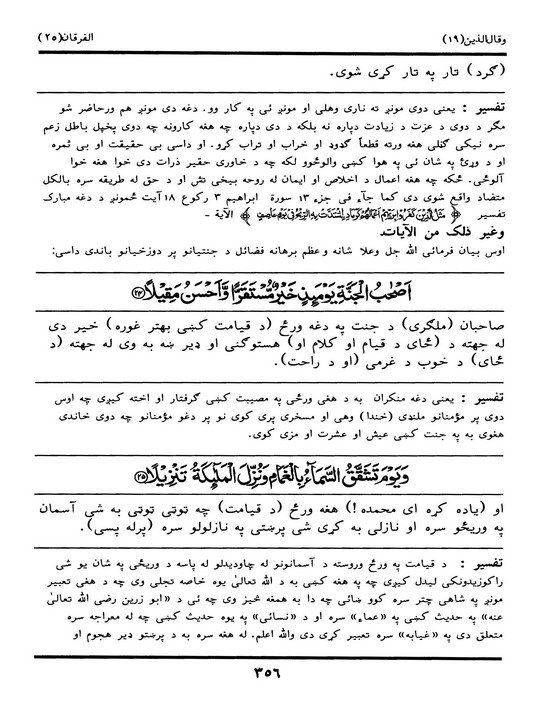 وقال‌الذین(۱۹) الفرقان(۲۵)
(ګرد) تار په تار کړی شوی.
تفسیر : یعنی دوی مونږ ته ناری وهلی او مونږ ئی په کار وو. دغه دی مونږ هم ورحاضر شو
مګر د دوی د عزت د زیادت دپاره نه بلکه د دی دپاره چه هغه کارونه چه دوی پخپل باطل زعم
سره نیکی ګڼلی هغه ورته قطعاً ګډوډ او خراب او تراب کړو. او داسی بی حقیقت او بی ثمره
او د وړی په شان ئی په هوا کښی والوځوو لکه چه د خاوری حقیر ذرات دی خوا هغه خوا
آلوځی. ځکه چه هغه اعمال د اخلاص او ایمان له روحه بیخی تش او د حق له طریقه سره بالکل
متضاد واقع شوی دی کما جآء فی جزء ۱۳ سورة ابراهیم ۳ رکوع ۱۸ آیت څمونږ د دغه مبارک
تفسیر ﴿ مَثَلُ الَّذِیْنَ كَفَرُوْا بِرَبِّهِمْ اَعْمَالُهُمْ كَرَمَادِ اِشْتَدَّتْ بِهِ الرِّیْحُ فِیْ یَوْمٍ عَاصِفٍ ﴾ الآیة -
وغیر ذلک من الآیات.
اوس بیان فرمائی الله جل وعلا شانه وعظم برهانه فضائل د جنتیانو پر دوزخیانو باندی داسی:
اَصْحٰبُ الْجَنَّةِ یَوْمَىِٕذٍ خَیْرٌ مُّسْتَقَرًّا وَّاَحْسَنُ مَقِیْلًا ﴿۲۴﴾
صاحبان (ملګری) د جنت په دغه ورځ (د قیامت کښی بهتر غوره) خیر دی
له جهته د (ځای د قیام او کلام او) هستوګنی او ډیر ښه به وی له جهته (د
ځای) د خوب د غرمی (او د راحت).
تفسیر : یعنی دغه منکران به د هغی ورځی په مصیبت کښی ګرفتار او اخته کیږی چه اوس
دوی پر مؤمنانو ملنډی (خندا) وهی او مسخری پری کوی نو پر دغو مؤمنانو چه دوی خاندی
هغوی به په جنت کښی عیش او عشرت او مزی کوی.
وَیَوْمَ تَشَقَّقُ السَّمَآءُ بِالْغَمَامِ وَنُزِّلَ الْمَلٰٓىِٕكَةُ تَنْزِیْلًا ﴿۲۵﴾
او (یاده کړه ای محمده!) هغه ورځ (د قیامت) چه ټوټی ټوټی به شی آسمان
په وریځو سره او نازلی به کړی شی پرښتی په نازلولو سره (پرله پسی).
تفسیر : د قیامت په ورځ وروسته د آسمانونو له چاودیدلو له پاسه د وریځی په شان یو شی
راکوزیدونکی لیدل کیږی چه په هغه کښی به د الله تعالیٰ یوه خاصه تجلی وی چه د هغی تعبیر
مونږ په شاهی چتر سره کوو ښائی چه دا به همغه څیز وی چه ئی د «ابو زرین رضی الله تعالیٰ
عنه» په حدیث کښی په «عماء» سره او د «نسائی» په یوه حدیث کښی چه له معراجه سره
متعلق دی په «غیابه» سره تعبیر کړی دی والله اعلم. له هغه سره به د پرښتو ډیر هجوم او
۳۵۶